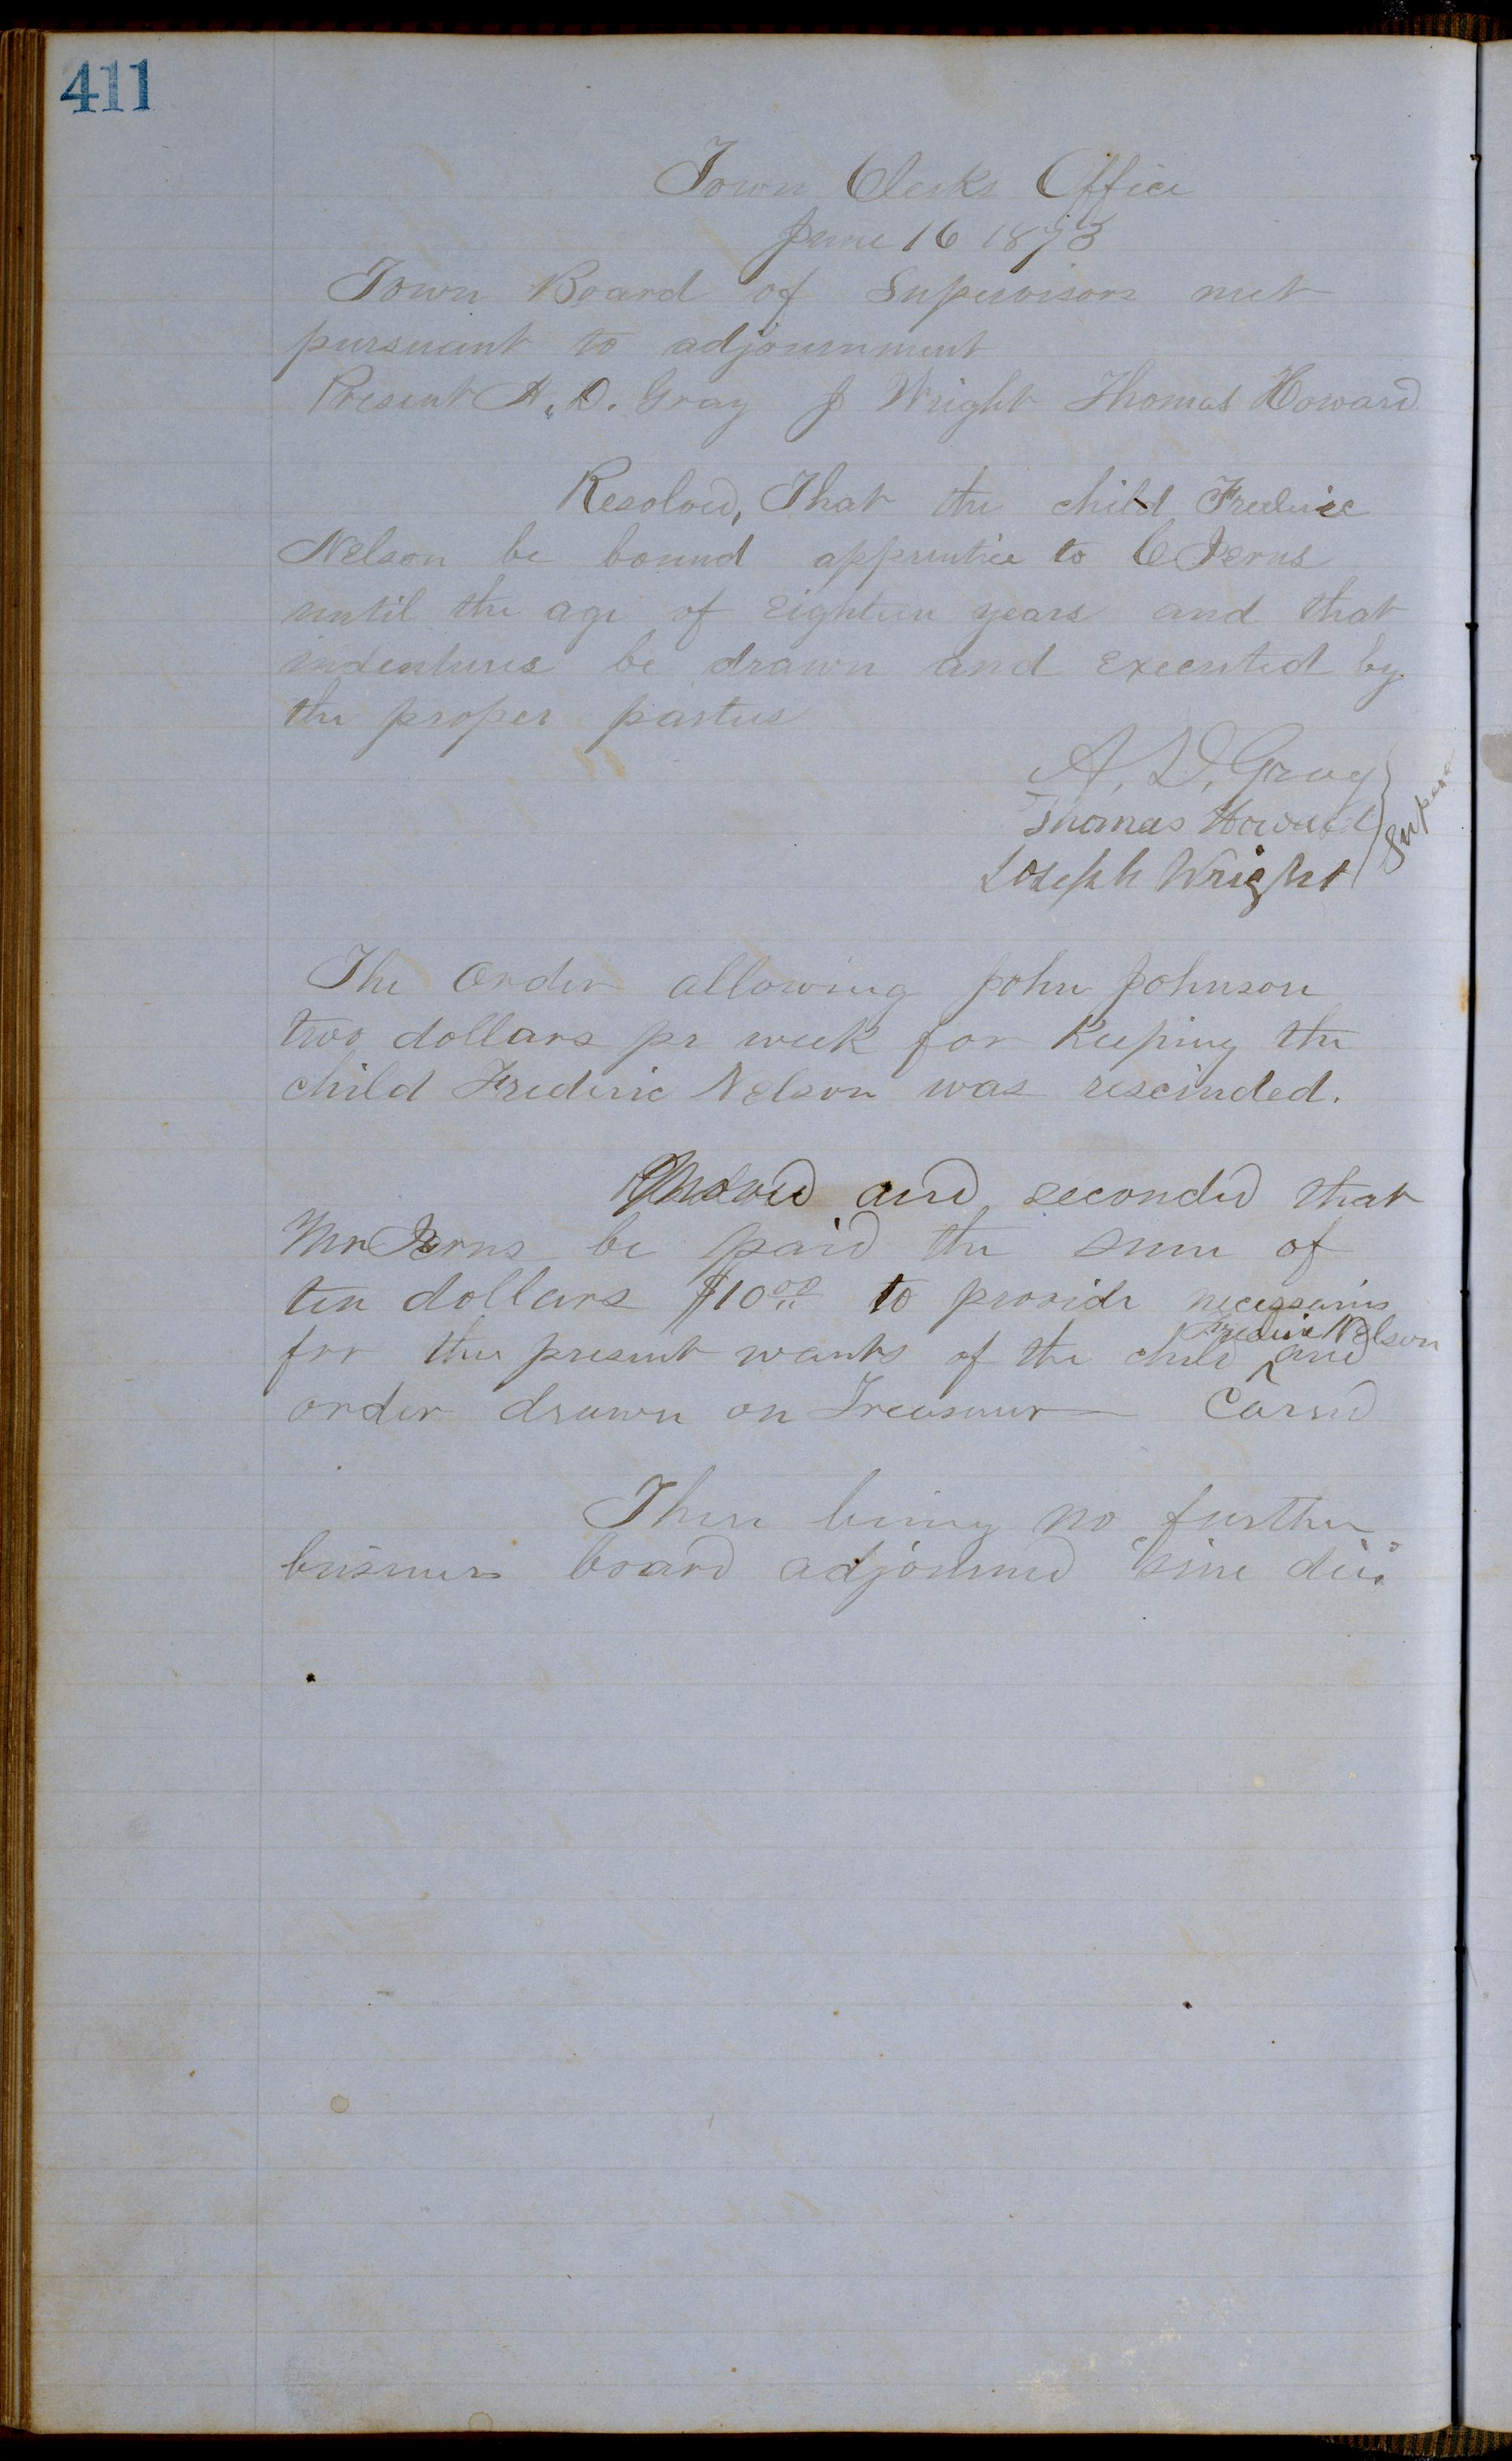 411
Town Clerks Office
June 16 1873
Town Board of Supervisors met
pursuant to adjournment
Present A. D. Gray J Wright Thomas Howard
Resolved, That the child Frederic
Nelson be bound apprentice to C Jerns
until the age of Eighteen years and that
indentures be drawn and executed by
the proper parties
A. D. Gray
Thomas Howard
Joseph Wright
Supers
The order allowing John Johnson
two dollars pr week for Keeping the
child Frederic Nelson was rescinded.
Moved and seconded that
Mr Jerns be paid the sum of
ten dollars $10 00 to provide necessaries
Frederic Nelson
for the present wants of the child and
order drawn on Treasurer — Carried
There being no further
business board adjourned "sine die"